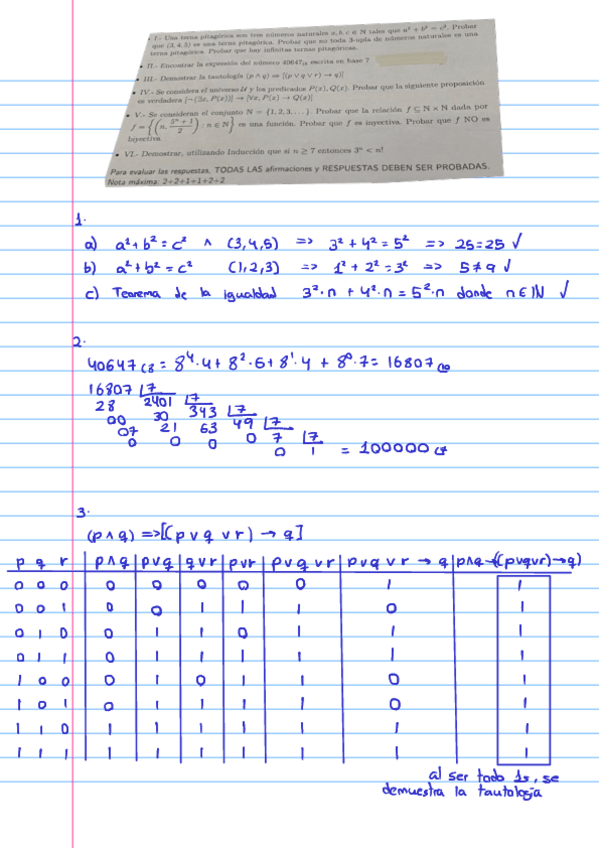 • I.- Una terna pitagórica son tres números naturales a, b, c ∈ N tales que a² + b² = c². Probar
que (3, 4, 5) es una terna pitagórica. Probar que no toda 3-upla de números naturales es una
terna pitagórica. Probar que hay infinitas ternas pitagóricas.
• II.- Encontrar la expresión del número 40647₍₈ escrita en base 7
• III.- Demostrar la tautología (p ∧ q) ⇒ [(p ∨ q ∨ r) → q]
• IV.- Se considera el universo U y los predicados P(x), Q(x). Probar que la siguiente proposición
es verdadera [¬(∃x, P(x))] → [∀x, P(x) → Q(x)]
• V.- Se consideran el conjunto N = {1, 2, 3, . . .}. Probar que la relación f ⊆ N × N dada por
f = {(n, (5ⁿ + 1)/2) : n ∈ N} es una función. Probar que f es inyectiva. Probar que f NO es
biyectiva.
• VI.- Demostrar, utilizando Inducción que si n ≥ 7 entonces 3ⁿ < n!
Para evaluar las respuestas, TODAS LAS afirmaciones y RESPUESTAS DEBEN SER PROBADAS.
Nota máxima: 2+2+1+1+2+2
1.
a) a² + b² = c² ∧ (3,4,5) => 3² + 4² = 5² => 25 = 25 √
b) a² + b² = c² (1,2,3) => 1² + 2² = 3² => 5 ≠ 9 √
c) Teorema de la igualdad 3²·n + 4²·n = 5²·n donde n ∈ IN √
2.
40647₍₈ = 8⁴·4 + 8²·6 + 8¹·4 + 8⁰·7 = 16807₍₁₀
16807 7
28 2401 7
00 30 343 7
07 21 63 49 7
0 0 0 0 7 7
0 1 = 100000₍₇
3.
(p ∧ q) => [(p ∨ q ∨ r) → q]
p q r p∧q p∨q q∨r p∨r p∨q∨r p∨q∨r → q p∧q→((p∨q∨r)→q)
0 0 0 0 0 0 0 0 1 1
0 0 1 0 0 1 1 1 0 1
0 1 0 0 1 1 0 1 1 1
0 1 1 0 1 1 1 1 1 1
1 0 0 0 1 0 1 1 0 1
1 0 1 0 1 1 1 1 0 1
1 1 0 1 1 1 1 1 1 1
1 1 1 1 1 1 1 1 1 1
al ser todo 1s, se
demuestra la tautología